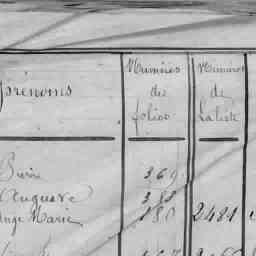 prénoms
Numéros des folios
Numéros de la liste
Pierre 369
Auguste 388
Ange Marie 180 2481